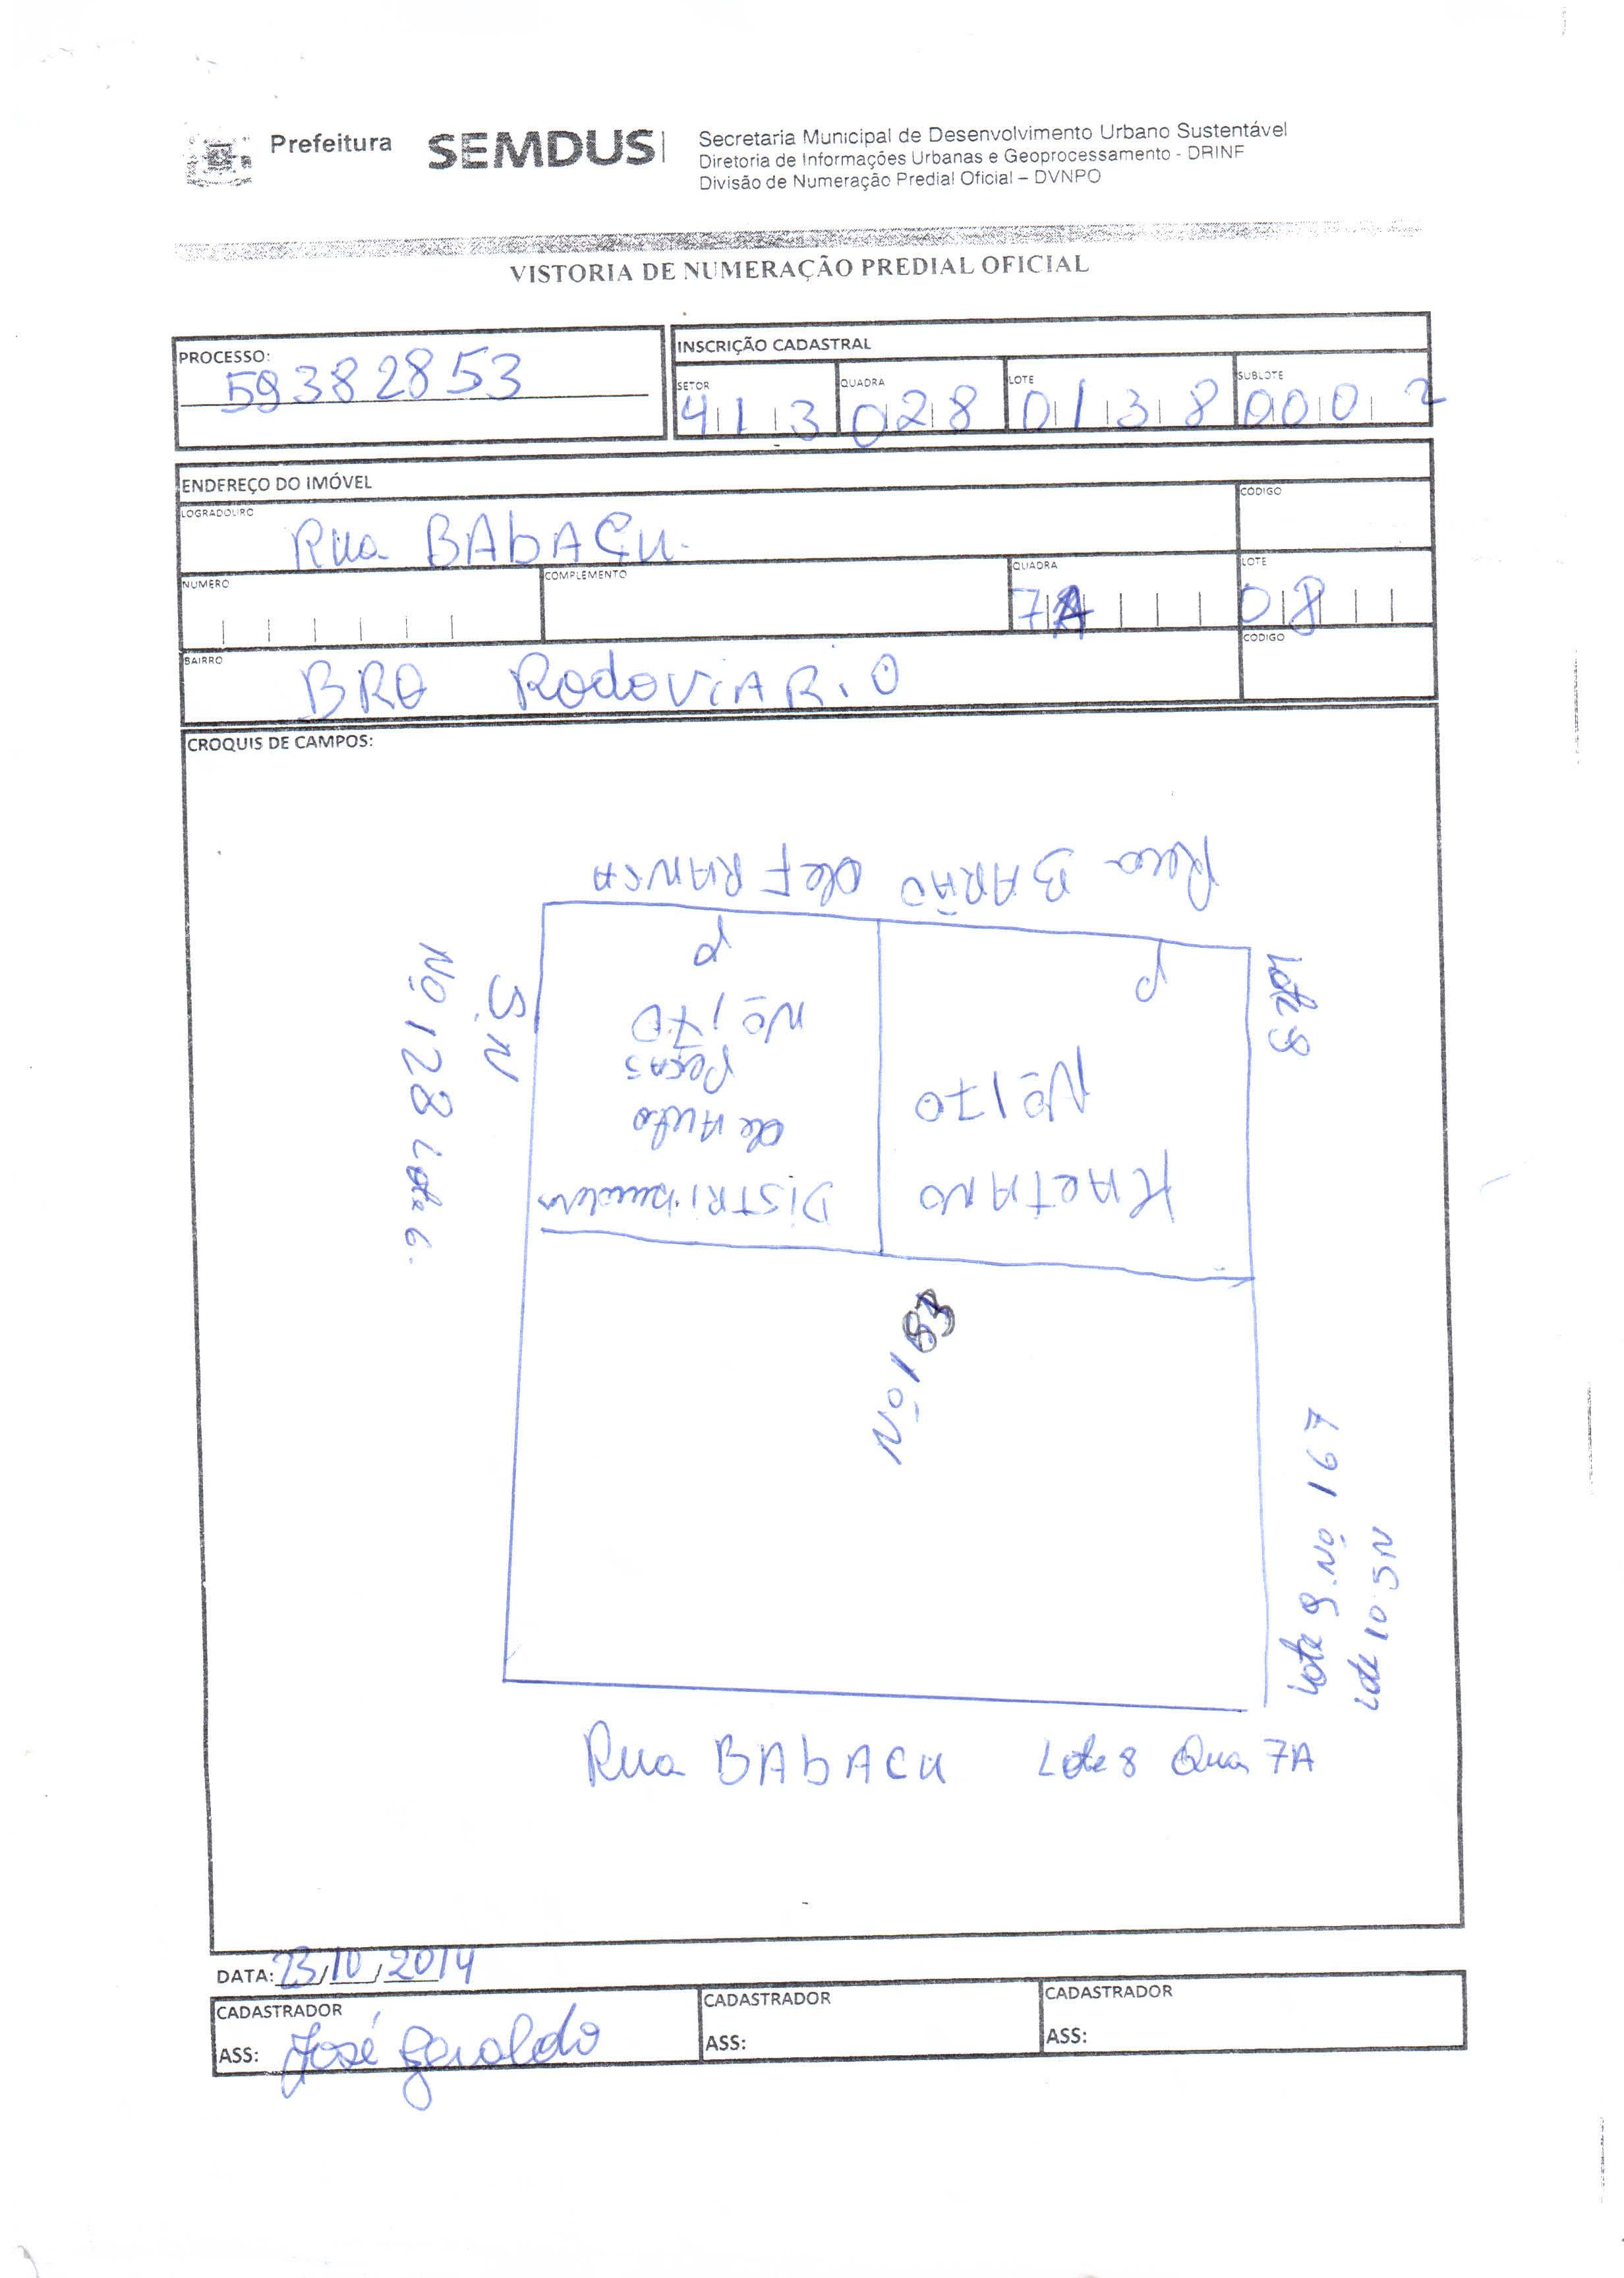 Prefeitura SEMDUS
Secretaria Municipal de Desenvolvimento Urbano Sustentável
Diretoria de Informações Urbanas e Geoprocessamento - DRINF
Divisão de Numeração Predial Oficial – DVNPO
VISTORIA DE NUMERAÇÃO PREDIAL OFICIAL
PROCESSO: 59382853
INSCRIÇÃO CADASTRAL
SETOR 413 QUADRA 028 LOTE 0138 SUBLOTE 0002
ENDEREÇO DO IMÓVEL
LOGRADOURO Rua BAbAÇu. CÓDIGO
NUMERO COMPLEMENTO QUADRA 7A LOTE 08
BAIRRO BRO RodoviARiO CÓDIGO
CROQUIS DE CAMPOS:
Rua BARÃO de FRANCA
Nº 128 Lote 6.
S.N
P
Nº 170
Peças
de Auto
P
Nº 170
Lote 9
Nº 183
Lote 9 Nº 167
Lote 10 SN
Rua BAbACu Lote 8 Qua 7A
DATA: 23/10/2014
CADASTRADOR
ASS: José Geraldo
CADASTRADOR
ASS:
CADASTRADOR
ASS: